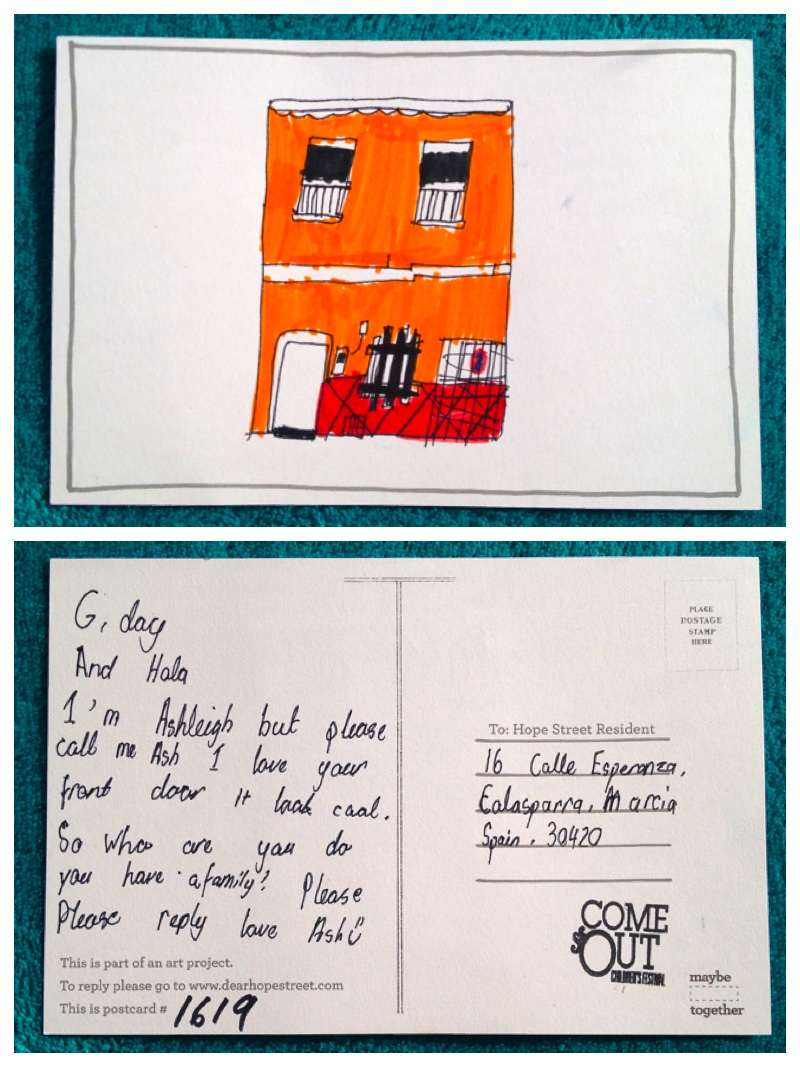 G, day
And Hola
I'm Ashleigh but please
call me Ash I love your
front door it look cool.
So who are you do
you have a family? Please
Please reply love Ash
This is part of an art project.
To reply please go to www.dearhopestreet.com
This is postcard # 1619
PLACE
POSTAGE
STAMP
HERE
To: Hope Street Resident
16 Calle Esperanza,
Calasparra, Murcia
Spain, 30420
COME
OUT
CHILDREN'S FESTIVAL
maybe
together